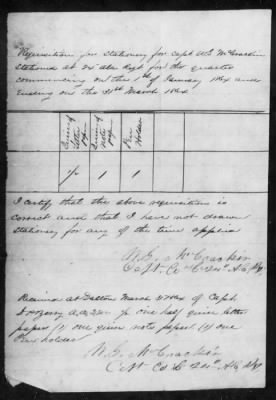 Requisition for Stationery for Capt W. G. McCrackin
Stationed at 24 Ala Regt for the quarter
commencing on the 1st of January 1864 and
Ending on the 31st March 1864
Quires of letter paper
Quires of note paper
Pen Holder
1/2 1 1
I certify that the above requisition is
correct and that I have not drawn
stationery for any of the time specified
W. G. McCrackin
Capt. Co 24th Ala Rgt
Received at Dalton March 1864 of Capt
A.Q.M. 1/2 one half quire letter
paper (1) one quire note paper (1) one
Pen holder
W. G. McCrackin
Capt Co 24th Ala Rgt